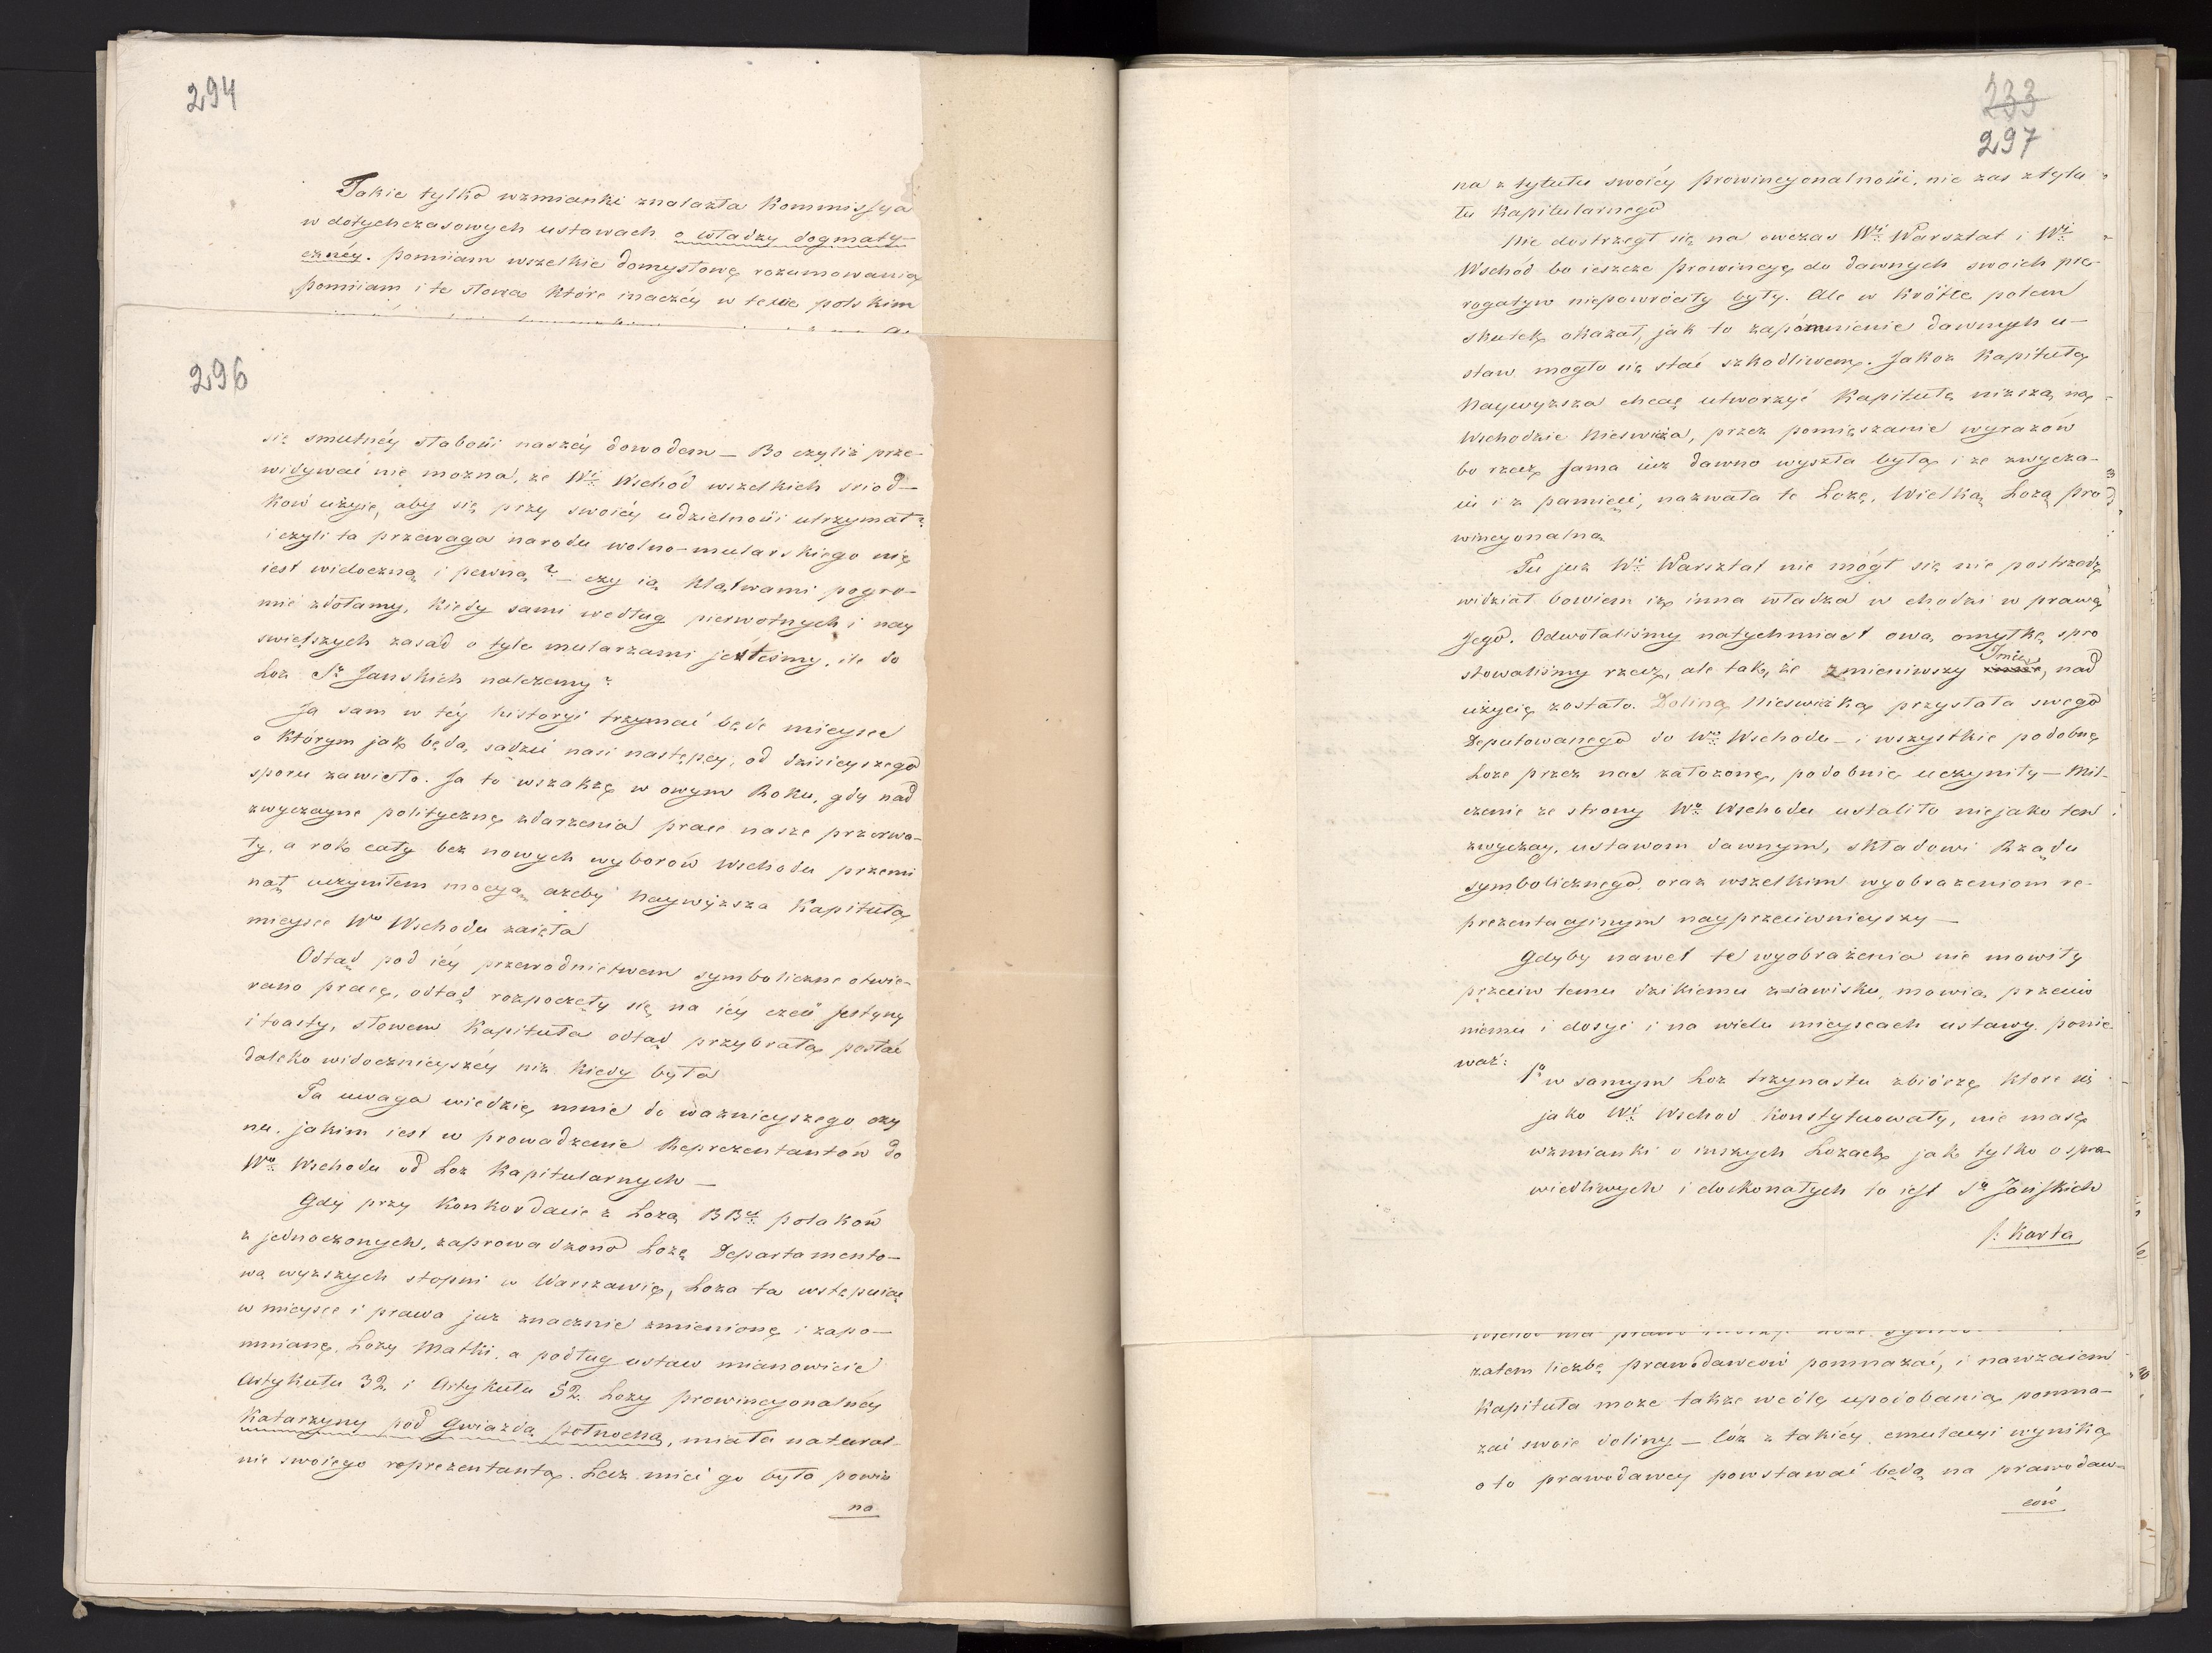 294
Takie tylko wzmianki znalazła Kommissya
w dotychczasowych ustawach o władzy dogmaty-
cznéy. pomiiam wszelkie domysłowe rozumowania
pomiiam i te słowa które inaczéy w texcie polskim
296
się smutnéy słabości naszéy dowodem — Bo czyliż prze-
widywać nie można, że Wi Wschód wszelkich srzod-
ków użyie, aby się przy swoiéy udzielności utrzymał?
i czyli ta przewaga narodu wolno-mularskiego nie
iest widoczną i pewną? — czy ią klątwami pogro-
mić zdołamy, kiedy sami według pierwotnych i nay
swiętszych zasad o tyle mularzami jesteśmy, ile do
Loz So Janskich należemy?
Ja sam w téy historyi trzymać będę mieysce
o którym jak będą sądzić nasi następcy, od dzisieyszego
sporu zawisło. Ja to wszakże w owym Roku, gdy nad
zwyczayne polityczne zdarzenia prace nasze przerwa-
ły, a rok cały bez nowych wyborów Wschodu przemi
nął uczyniłem mocyą ażeby Naywyższa Kapituła
mieysce Wo Wschodu zaięła
Odtąd pod iéy przewodnictwem symboliczne otwie-
rano prace, odtąd rozpoczęły się na iéy cześć festyny
i toasty, słowem Kapituła odtąd przybrała postać
daleko widocznieyszéy niż kiedy była
Ta uwaga wiedzie mnie do ważnieyszego czy
nu, jakim iest w prowadzenie Reprezentantów do
Wo Wschodu od Loz Kapitularnych —
Gdy przy Konkordacie z Lozą BB polaków
z jednoczonych, zaprowadzono Lozę Departamento-
wą wyższych stopni w Warszawie, Loza ta wstępuiąc
w mieysce i prawa już znacznie zmienione i zapo-
mniane, Lozy Matki, a podług ustaw mianowicie
Artykułu 32. i Artykułu 52. Lozy prowincyonalnéy
Katarzyny pod Gwiazdą północną, miała natural-
nie swoiego reprezentanta. Lecz mieć go była powin
na
233
297
na z tytułu swoiéy prowincyonalności, nie zas z tytu
łu Kapitularnego
Nie dostrzegł się na owczas Wi Warsztat i Wi
Wschód bo ieszcze prowincye do dawnych swoich pre-
rogatyw niepowróciły były. Ale w krótce potem
skutek okazał, jak to zapomnienie dawnych u-
staw mogło się stać szkodliwem. Jakoż Kapituła
Naywyższa chcąc utworzyć Kapitułę niższą na
Wschodzie Nieswieża, przez pomięszanie wyrazów
bo rzecz sama iuż dawno wyszła była i ze zwycza-
iu i z pamięci, nazwała te Lozę, Wielką Lozą pro
wincyonalną
Tu już Wi Warsztat nie mógł się nie postrzedz
widział bowiem iż inna władza w chodzi w prawa
Jego. Odwołaliśmy natychmiast ową omyłkę, spro
stowaliśmy rzecz, ale tak, że zmieniwszy Imie, nad
użycie zostało. Dolina Nieswizka przysłała swego
Deputowanego do Wo Wschodu — i wszystkie podobne
Loze przez nas założone, podobnie uczyniły — Mil-
czenie ze strony Wo Wschodu ustaliło niejako ten
zwyczay, ustawom dawnym, składowi Rządu
symbolicznego, oraz wszelkim wyobrażeniom re-
prezentacyinym nayprzeciwnieyszy —
Gdyby nawet te wyobrażenia nie mowiły
przeciw temu dzikiemu ziawisku, mowią przeciw
niemu i dosyć i na wielu mieyscach ustawy. ponie
waż:
1o w samym Loz trzynastu zbiórze, które się
jako Wi Wschod konstytuowały, nie masz
wzmianki o inszych Lozach jak tylko o spra
wiedliwych i doskonałych to iest So Janskich
f: Karta
zatem liczbę prawodawców pomnażać, i nawzaiem
Kapituła może także wedle upodobania pomna-
żać swoie doliny — Cóż z takiéy emulacyi wynika
oto prawodawcy powstawać będą na prawodaw-
ców